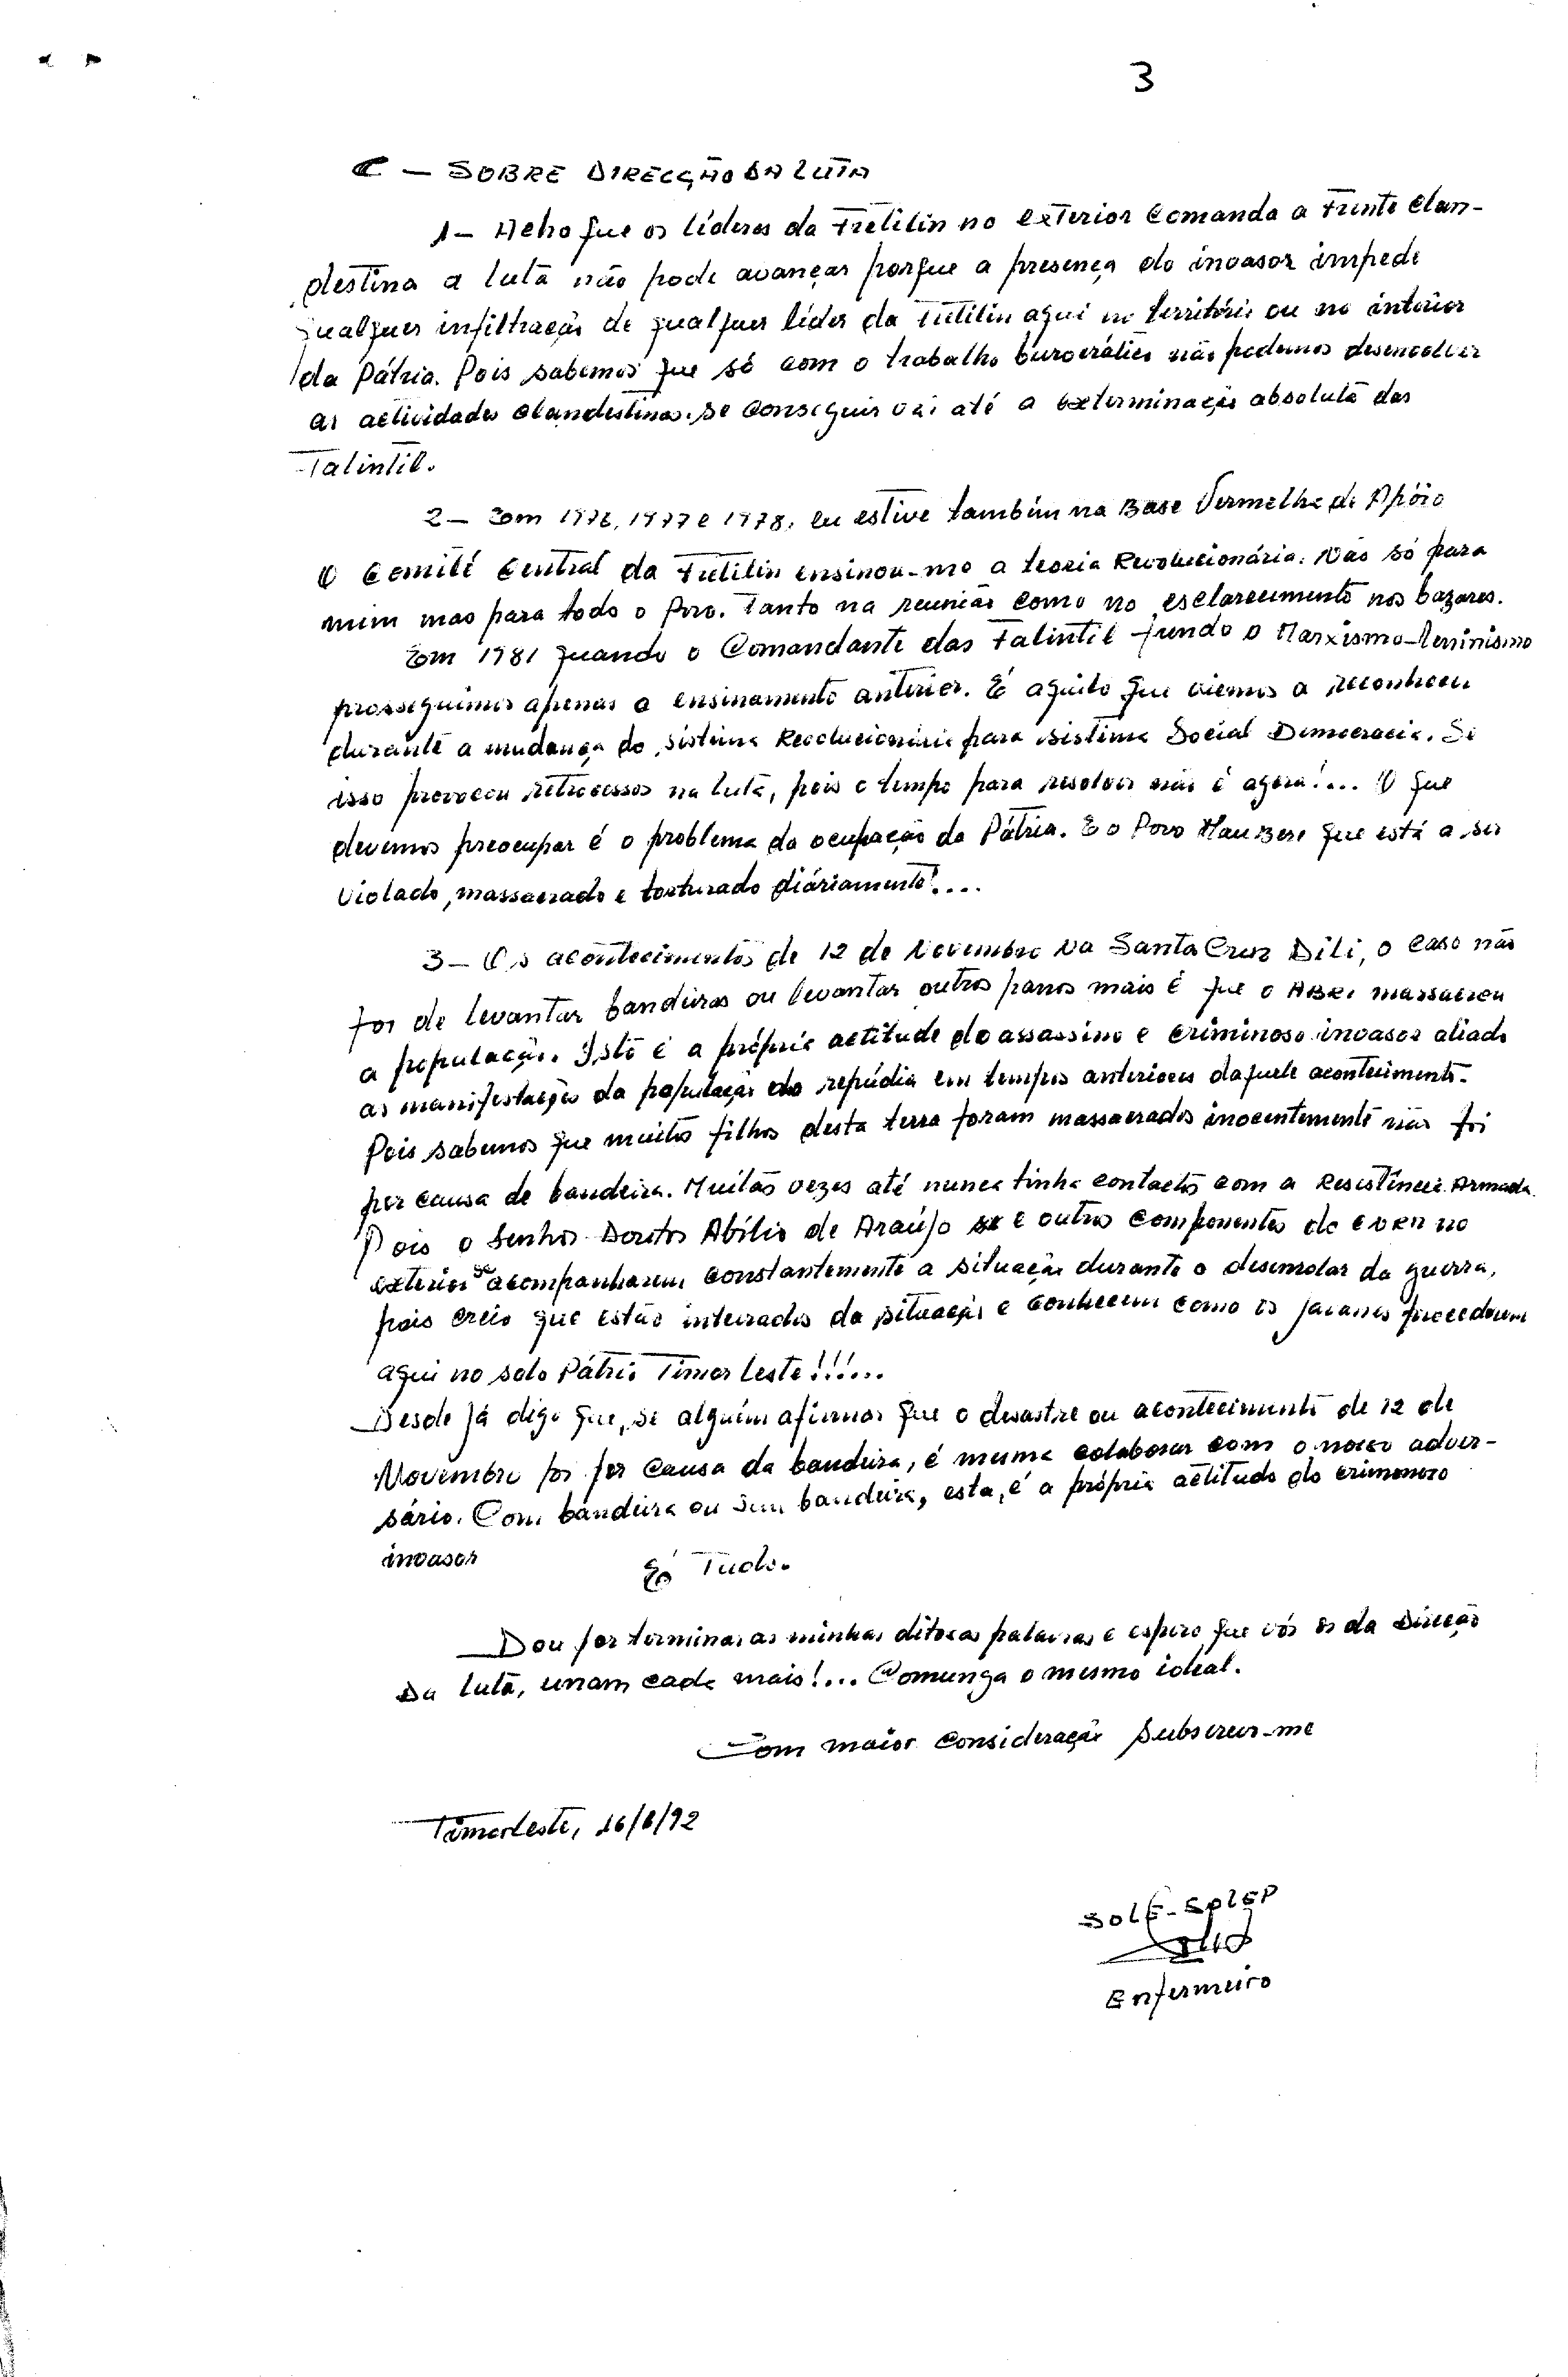 3
C — SOBRE DIRECÇÃO DA LUTA
1 — Acho que os líderes da Fretilin no exterior comanda a Frente Clan-
destina a luta não pode avançar porque a presença do invasor impede
qualquer infiltração de qualquer líder da Fretilin aqui no território ou no interior
da Pátria. Pois sabemos que só com o trabalho burocrático não podemos desenvolver
as actividades clandestinas. Se conseguir vai até a exterminação absoluta das
Falintil.
2 — Em 1976, 1977 e 1978, eu estive também na Base Vermelha de Apóio
O Comité Central da Fretilin ensinou-me a teoria Revolucionária. Não só para
mim mas para todo o Povo. Tanto na reunião como no esclarecimento nos bazares.
Em 1981 quando o Comandante das Falintil fundo o Marxismo-leninismo
prosseguimos apenas o ensinamento anterior. É aquilo que viemos a reconhecer
durante a mudança do sistema Revolucionário para sistema Social Democracia. Se
isso provocou retrocessos na luta, pois o tempo para resolver não é agora!... O que
devemos preocupar é o problema da ocupação da Pátria. E o Povo Mau Bere que está a ser
violado, massacrado e torturado diáriamente!....
3 — Os acontecimentos de 12 de Novembro na Santa Cruz Dili, o caso não
foi de levantar bandeiras ou levantar outros panos mais é que o ABRI massacrou
a população. Isto é a própria actitude do assassino e criminoso invasor aliado
as manifestações da população do repúdia em tempos anteriores daquele acontecimento.
Pois sabemos que muitos filhos desta terra foram massacrados inocentemente não foi
por causa de bandeira. Muitas vezes até nunca tinha contactos com a Resistência Armada.
Pois o Senhor Doutor Abílio de Araújo e outros componentes do CNRM no
exterior se acompanharem constantemente a situação durante o desenrolar da guerra,
pois creio que estão inteirados da situação e conhecem como os javanes procederem
aqui no solo Pátrio Timor Leste!!!...
Desde já digo que, se alguém afirmar que o desastre ou acontecimento de 12 de
Novembro foi por causa da bandeira, é mesma colaborar com o nosso adver-
sário. Com bandeira ou sem bandeira, esta, é a própria actitude do crimonoso
invasor
É Tudo.
Dou por terminar as minhas ditosas palavras e espero que vós os da Direcção
Da luta, unam cada mais!... Comunga o mesmo ideal.
Com maior consideração Subscrevo-me
Timor Leste, 16/6/92
SOLE-EPLEP
Enfermeiro